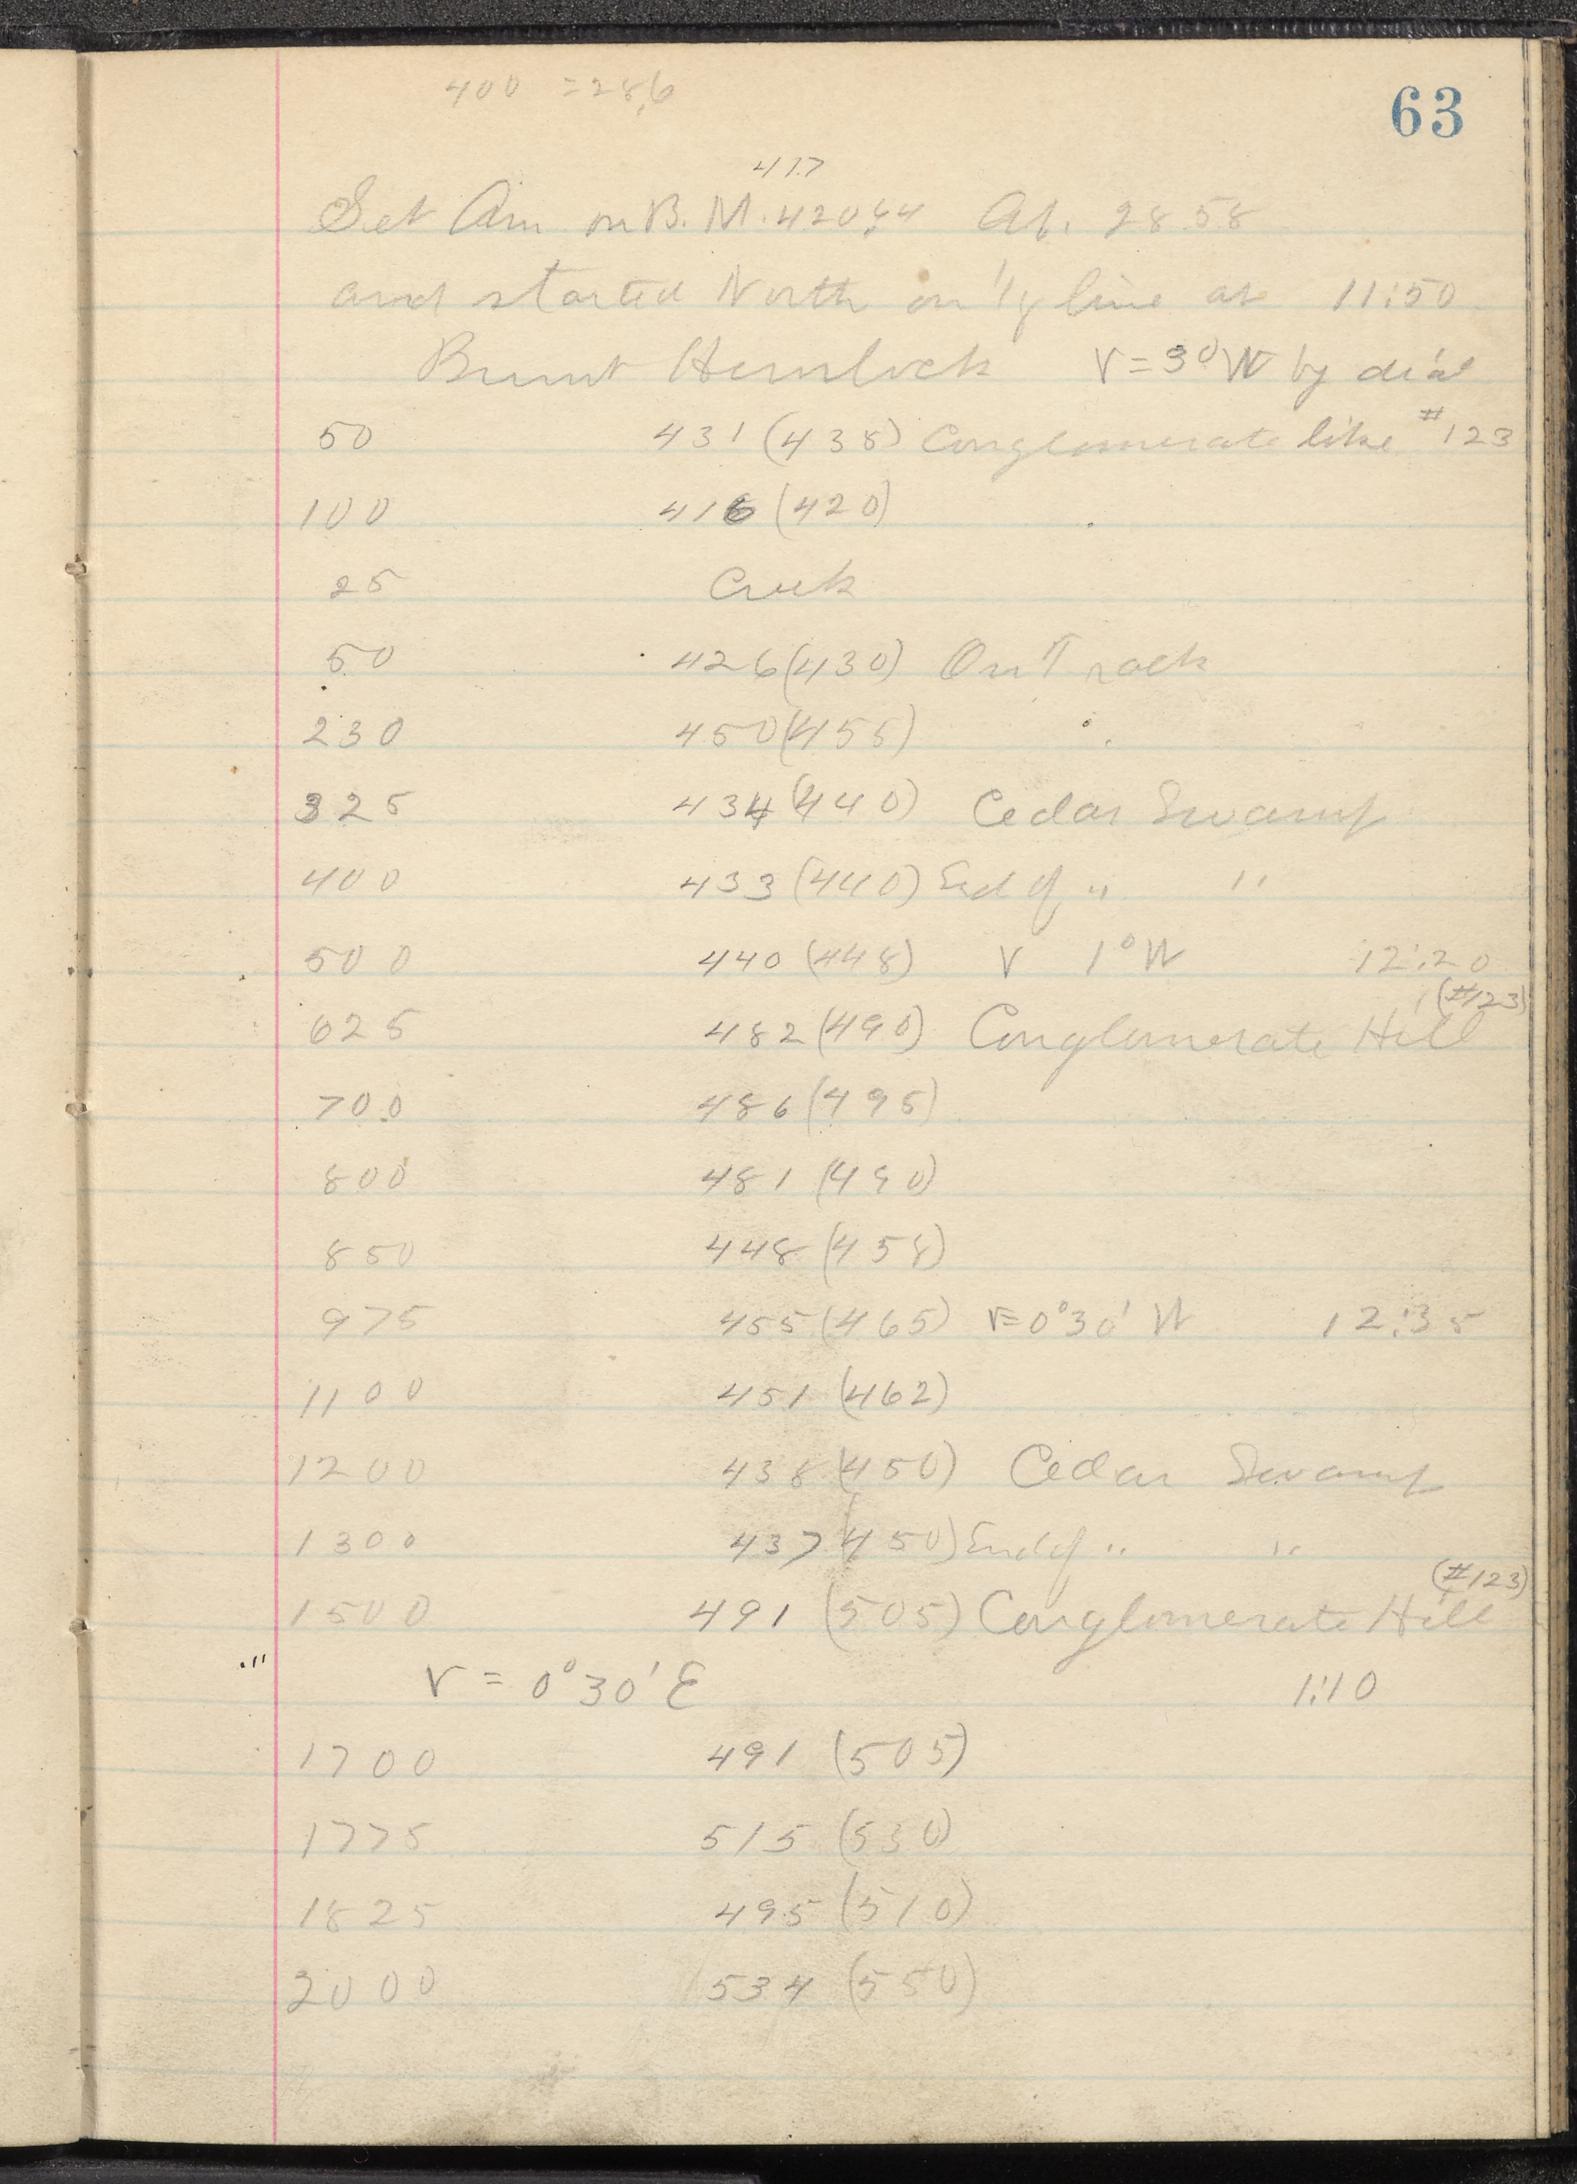 63
400 = 28.6
417
Set An. on B. M. 420.44 At. 28.58
and started North on 1/4 line at 11:50
Burnt Hemlock V = 3° W by dial
50 431 (438) Conglomerate like #123
100 416 (420)
25 Creek
50 426 (430) On Track
230 450 (455)
325 434 (440) Cedar Swamp
400 433 (440) End of " "
500 440 (448) V 1° W 12:20
(#123)
625 482 (490) Conglomerate Hill
700 486 (495)
800 481 (490)
850 448 (458)
975 455 (465) V = 0° 30' W 12:35
1100 451 (462)
1200 438 (450) Cedar Swamp
1300 437 (450) End of " "
(#123)
1500 491 (505) Conglomerate Hill
V = 0° 30' E 1:10
1700 491 (505)
1775 515 (530)
1825 495 (510)
2000 534 (550)